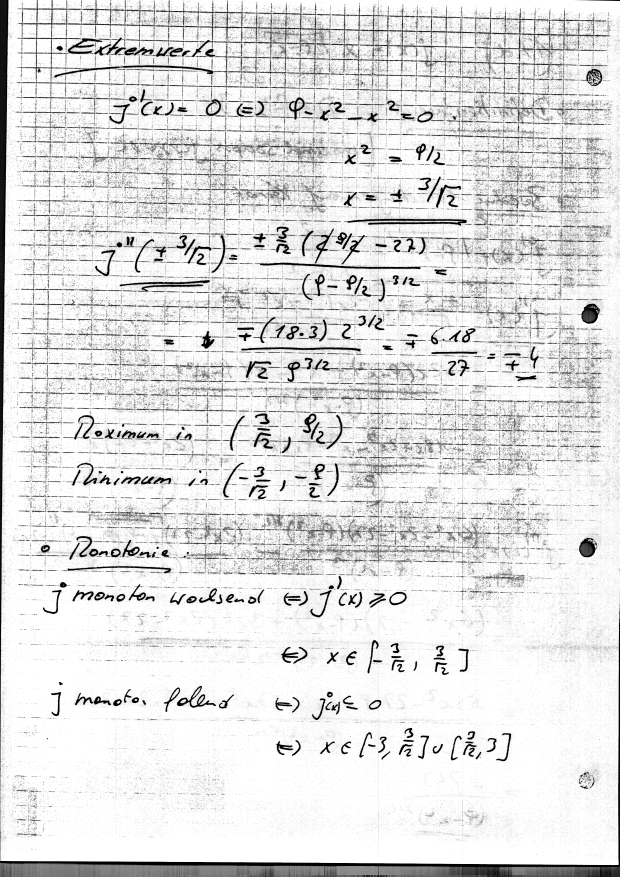 • Extremwerte
j'(x) = 0 ⇔ 9 - x² - x² = 0.
x² = 9/2
x = ± 3/√2
j''(± 3/√2) = ± 3/√2 (2 9/2 - 27) / (9 - 9/2)^3/2 =
= ∓(18·3) 2^3/2 / √2 9^3/2 = ∓ 6·18 / 27 = ∓ 4
Maximum in (3/√2, 9/2)
Minimum in (-3/√2, -9/2)
• Monotonie:
j monoton wachsend ⇔ j'(x) ≥ 0
⇔ x ∈ [-3/√2, 3/√2]
j monoton fallend ⇔ j'(x) ≤ 0
⇔ x ∈ [-3, 3/√2] ∪ [3/√2, 3]